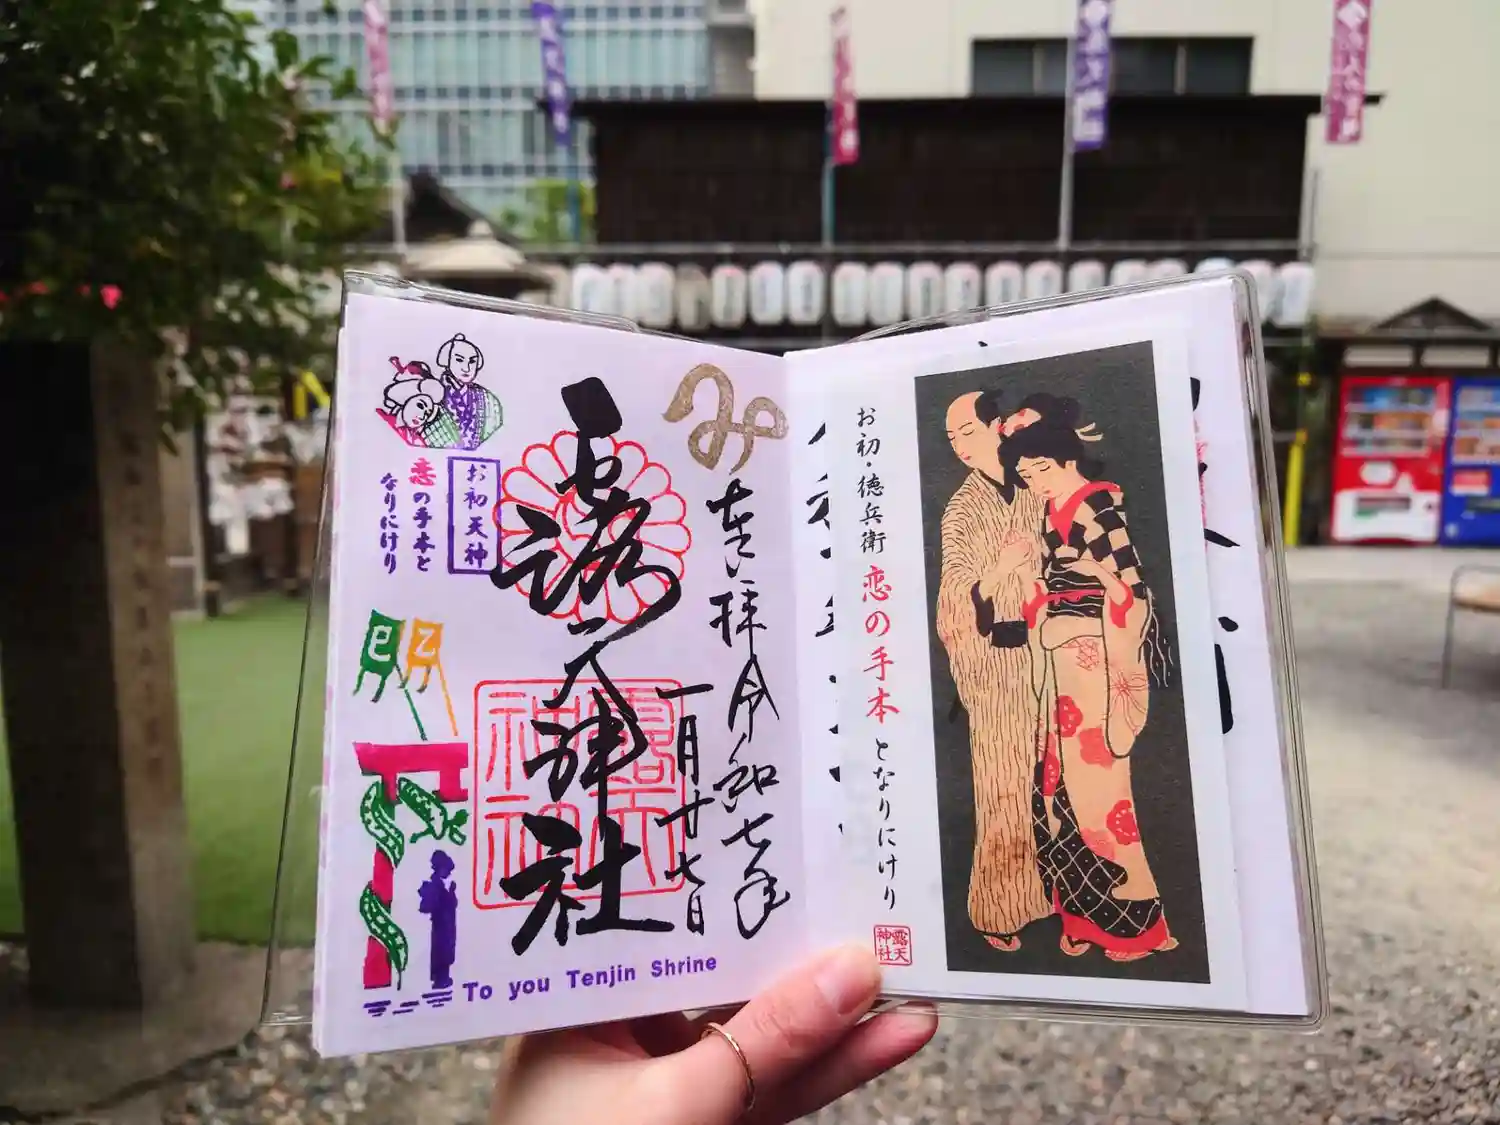 み
奉拝 令和七年
一月廿七日
露天神社
露天
神社
お初天神
恋の手本と
なりにけり
巳
乙
To you Tenjin Shrine
お初・徳兵衛 恋の手本 となりにけり
露天
神社